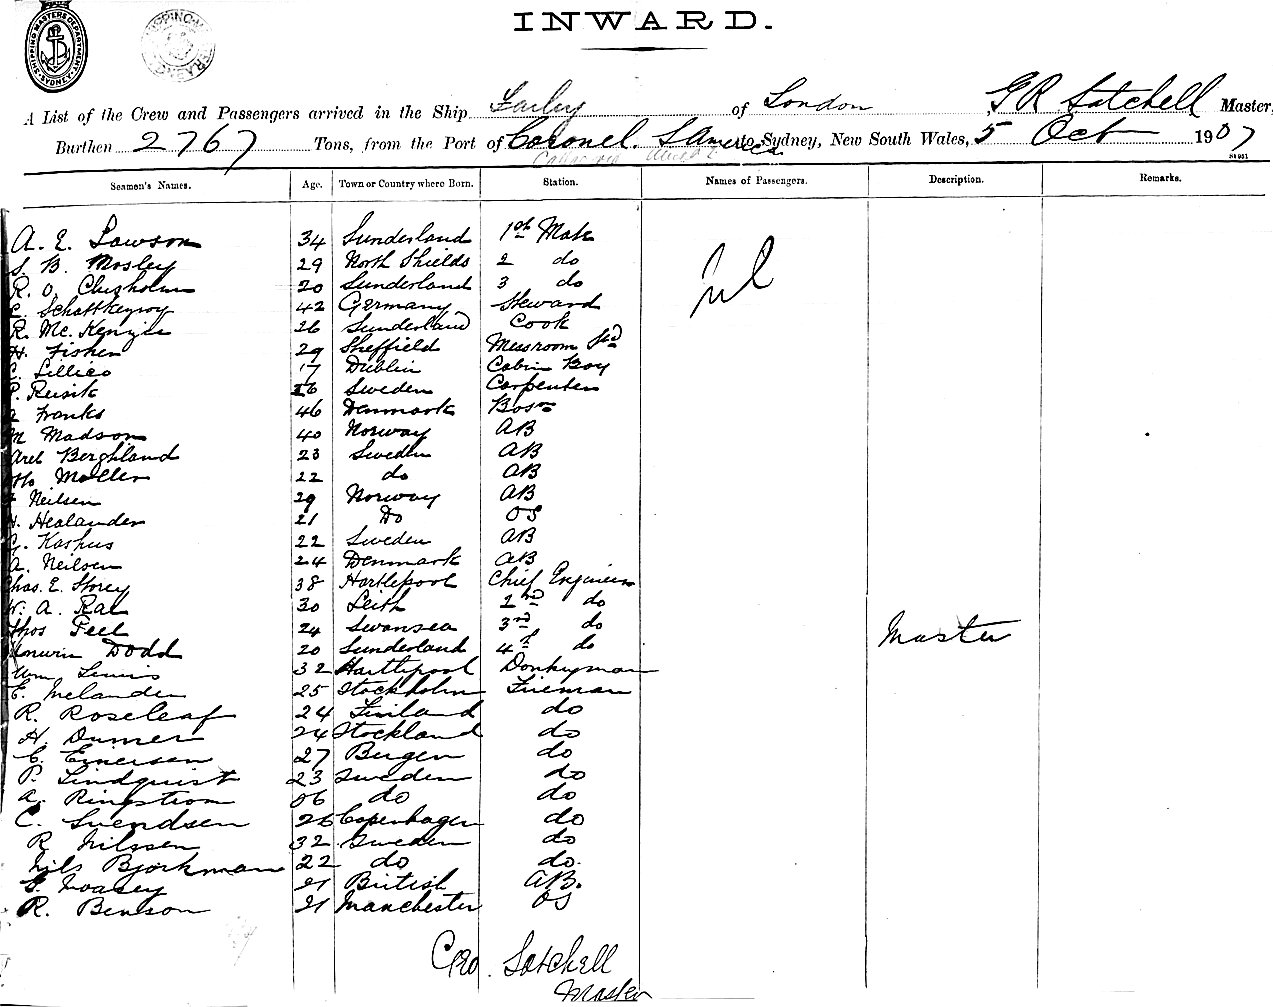 INWARD.
SHIPPING MASTERS DEPARTMENT SYDNEY
A List of the Crew and Passengers arrived in the Ship Farley of London, G R Satchell Master,
Burthen 2767 Tons, from the Port of Coronel. S America to Sydney, New South Wales, 5 Oct 1907
Seamen's Names. Age. Town or Country where Born. Station. Names of Passengers. Description. Remarks.
A. E. Lawson 34 Sunderland 1st Mate
S. B. Mosley 29 North Shields 2 do
R. O. Chisholm 20 Sunderland 3 do
42 Germany Steward
R. Mc. Kenzie 26 Sunderland Cook
H. Fisher 29 Sheffield Messroom Std
C. Lillico 17 Dublin Cabin Boy
P. Rusik Sweden Carpenter
Franks 46 Denmark Bosn
M Madson 40 Norway AB
Axel Berghland 23 Sweden AB
Otto Moller 22 do AB
Neilsen 29 Norway AB
H. Healander 21 Do OS
G. Kaspus 22 Sweden AB
A. Neilsen 24 Denmark AB
Chas. E. Storey 38 Hartlepool Chief Engineer
W. A. Rae 30 Leith 2nd do
Thos Peel 24 Swansea 3rd do
Master
Dodd 20 Sunderland 4th do
Wm Lewis 32 Hartlepool Donkyman
E. Melander 25 Stockholm Fireman
R. Roseleaf 24 Finland do
H. Dumer 24 Stockland do
C. Einersen 27 Bergen do
P. Lindquist 23 Sweden do
A. Ringstrom 06 do do
C. Svendsen 26 Copenhagen do
R Nilssen 32 Sweden do
Nils Bjorkman 22 do do.
G. 21 British AB.
R. Benson 21 Manchester OS
Nil
Geo. Satchell
Master